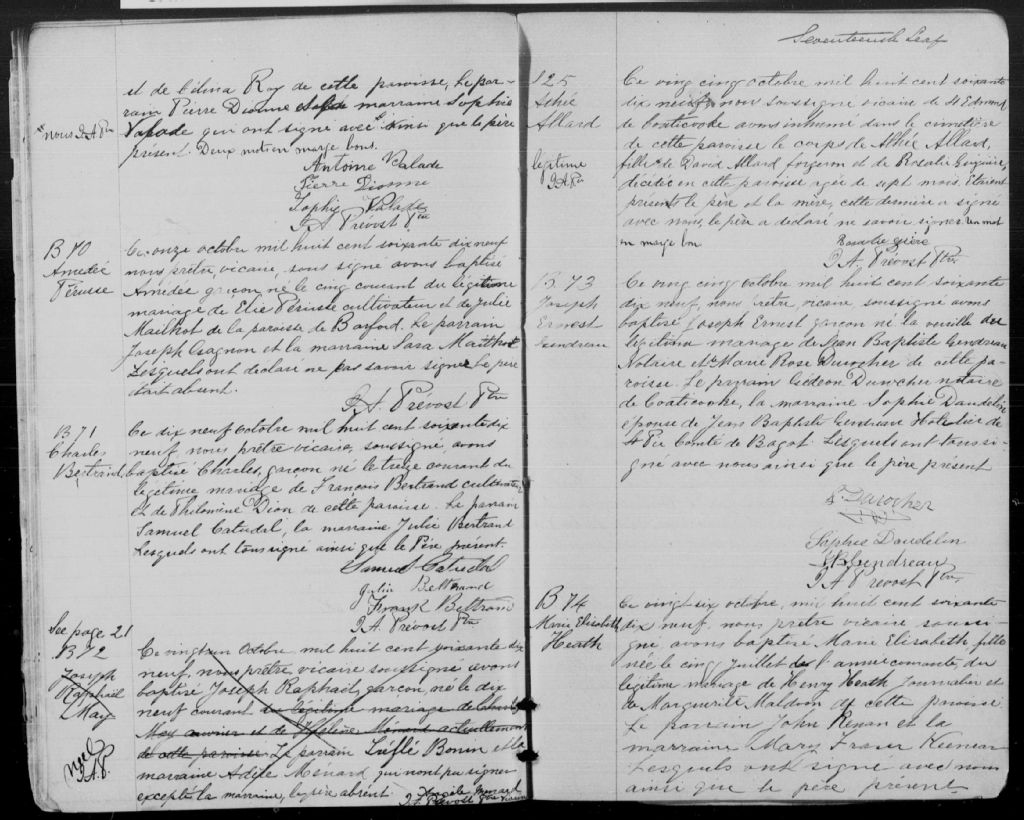 et de Célina Roy de cette paroisse, Le par-
rain Pierre Dionne marraine Sophie
nous J.A. Ptre
Valade qui ont signé avec ainsi que le père
présent. Deux mot en marge bons.
Antoine Valade
Pierre Dionne
Sophie Valade
J.A. Prévost Ptre
B 70
Amédée
Péusse
Ce onze octobre mil huit cent soixante dix neuf
nous prêtre, vicaire, sous signé avons baptisé
Amédée garçon né le cinq courant du légitime
mariage de Elie cultivateur et de Julie
Mailhot de la paroisse de Barford. Le parrain
Joseph Gagnon et la marraine Sara Mailhot
Lesquels ont declaré ne pas savoir signer le père
était absent.
J.A. Prévost Ptre
B 71
Charles
Bertrand
Ce dix neuf octobre mil huit cent soixante dix
neuf, nous, prêtre vicaire, soussigné, avons
baptisé Charles, garçon né le treize courant du
légitime mariage de François Bertrand cultivateur
et de Philomène Dion de cette paroisse. Le parrain
Samuel Catudal, la marraine Julie Bertrand
Lesquels ont tous signé ainsi que le Père présent.
Samuel Catudal
Julia Bertrand
Frank Bertrand
J.A. Prévost Ptre
See page 21
B 72
Joseph
Raphaël
May
nul
J.A.P.
Ce vingt un Octobre mil huit cent soixante dix
neuf, nous, prêtre vicaire soussigné avons
baptisé Joseph Raphaël, garçon, né le dix
neuf courant du légitime mariage de Charles
May ouvrier et de Helène Ménard actuellement
de cette paroisse. Le parrain Bonin et la
marraine Adèle Ménard qui n'ont pu signer
excepté la marraine, le père absent. Angèle Menard
J.A. Prévost Ptre
Seventeenth Leaf
S 25
Athée
Allard
légitime
J.A. Ptre
Ce ving cinq octobre mil huit cent soixante
dix neuf nous soussigné vicaire de St Edmond
de Coaticooke avons inhumé dans le cimetière
de cette paroisse le corps de Athée Allard,
fille de David Allard forgeron et de Rosalie
décédée en cette paroisse agée de sept mois. Etaient
présents le père et la mère, cette dernière a signé
avec nous, le père a déclaré ne savoir signer. un mot
en marge bon
J.A. Prévost Ptre
B. 73
Joseph
Ernest
Gendreau
Ce ving cinq octobre mil huit cent soixante
dix neuf, nous, prêtre vicaire soussigné avons
baptisé Joseph Ernest garçon né la veille du
légitime mariage de Jean Baptiste Gendreau
Notaire et de Marie Rose Durocher de cette pa-
roisse. Le parrain Gédéon Durocher notaire
de Coaticooke, la marraine Sophie Daudelin
épouse de Jean Baptiste Gendreau Hotelier de
St Pie Comté de Bagot. Lesquels ont tous si-
gné avec nous ainsi que le père présent
G. Durocher
Sophie Daudelin
J B Gendreau
J A Prévost Ptre
B 74
Marie Elisabeth
Heath
Ce vingt six octobre, mil huit cent soixante
dix neuf, nous prêtre vicaire soussi-
gné avons baptisé Marie Elisabeth fille
née le cinq Juillet de l'année courante, du
légitime mariage de Henry Heath Journalier et
de Marguerite Maldon de cette paroisse
Le parrain John Kenan et la
marraine Mary Fraser Keenan
Lesquels ont signé avec nous
ainsi que le père présent